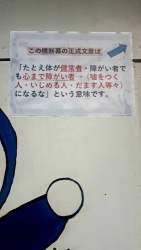 この横断幕の正式文章は
「たとえ体が健常者・障がい者で
も心まで障がい者→(嘘をつく
人・いじめる人・だます人等々)
になるな」という意味です。